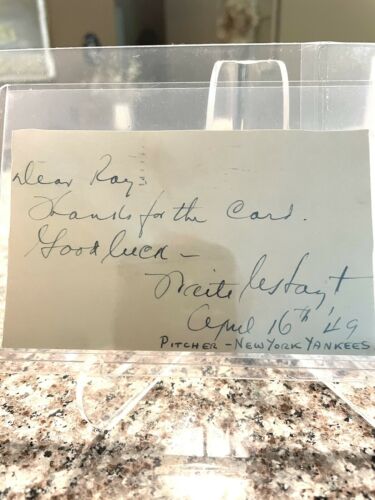 Dear Ray:
Thanks for the Card.
Good luck —
Waite Hoyt
April 16th '49
PITCHER - NEW YORK YANKEES